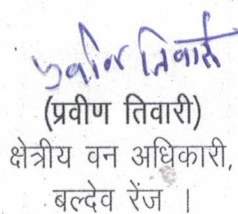 प्रवीन तिवारी
(प्रवीण तिवारी)
क्षेत्रीय वन अधिकारी,
बल्देव रेंज ।